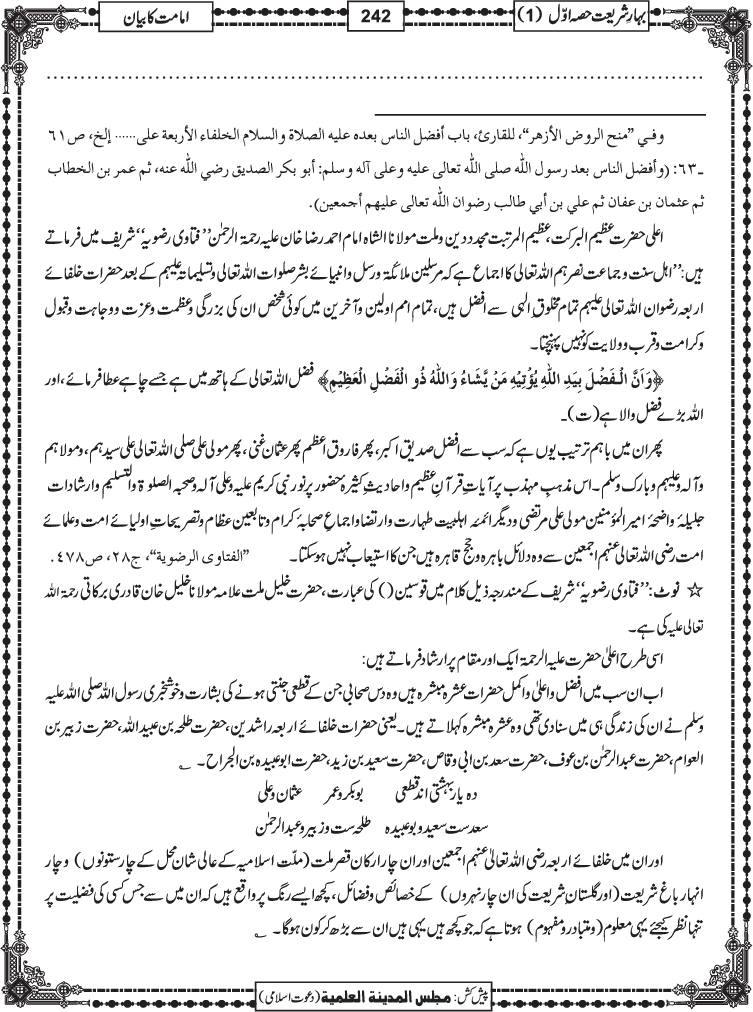 بہار شریعت حصہ اوّل (1)
242
امامت کا بیان
وفي ”منح الروض الأزهر“، للقارئ، باب أفضل الناس بعده عليه الصلاة والسلام الخلفاء الأربعة على...... إلخ، ص٦١
ـ٦٣: (وأفضل الناس بعد رسول الله صلى الله تعالى عليه وعلى آله وسلم: أبو بكر الصديق رضي الله عنه، ثم عمر بن الخطاب
ثم عثمان بن عفان ثم علي بن أبي طالب رضوان الله تعالى عليهم أجمعين).
اعلیٰ حضرت عظیم البرکت، عظیم المرتبت مجدد دین وملت مولانا الشاہ امام احمد رضا خان علیہ رحمۃ الرحمٰن ’’فتاوی رضویہ‘‘ شریف میں فرماتے
ہیں: ’’اہل سنت و جماعت نصرہم اللہ تعالیٰ کا اجماع ہے کہ مرسلین ملائکۃ ورسل وانبیائے بشر صلوات اللہ تعالیٰ وتسلیماتہ علیہم کے بعد حضرات خلفائے
اربعہ رضوان اللہ تعالیٰ علیہم تمام مخلوق الٰہی سے افضل ہیں، تمام امم اولین وآخرین میں کوئی شخص ان کی بزرگی وعظمت وعزت ووجاہت وقبول
وکرامت وقرب وولایت کو نہیں پہنچتا۔
﴿وَاَنَّ الْـفَضْلَ بِيَدِ اللّٰهِ يُؤْتِيْهِ مَنْ يَّشَآءُ وَاللّٰهُ ذُو الْفَضْلِ الْعَظِيْمِ﴾ فضل اللہ تعالیٰ کے ہاتھ میں ہے جسے چاہے عطا فرمائے، اور
اللہ بڑے فضل والا ہے (ت)۔
پھر ان میں باہم ترتیب یوں ہے کہ سب سے افضل صدیق اکبر، پھر فاروق اعظم پھر عثمان غنی، پھر مولیٰ علی صلی اللہ تعالیٰ علی سیدہم، ومولاہم
وآلہ وعلیہم وبارک وسلم۔ اس مذہبِ مہذب پر آیاتِ قرآنِ عظیم واحادیثِ کثیرۂ حضور پرنور نبی کریم علیہ وعلی آلہ وصحبہ الصلوۃ والتسلیم وارشادات
جلیلۂ واضحۂ امیر المؤمنین مولیٰ علی مرتضی ودیگر ائمئہ اہلبیت طہارت وارتضا واجماعِ صحابۂ کرام وتابعین عظام وتصریحاتِ اولیائے امت وعلمائے
امت رضی اللہ تعالیٰ عنہم اجمعین سے وہ دلائل باہرہ و حجج قاہرہ ہیں جن کا استیعاب نہیں ہوسکتا۔ ”الفتاوى الرضوية“، ج٢٨، ص٤٧٨.
☆ نوٹ: ’’فتاوی رضویہ‘‘ شریف کے مندرجہ ذیل کلام میں قوسین () کی عبارت، حضرت خلیل ملت علامہ مولانا خلیل خان قادری برکاتی رحمۃ اللہ
تعالیٰ علیہ کی ہے۔
اسی طرح اعلیٰ حضرت علیہ الرحمۃ ایک اور مقام پر ارشاد فرماتے ہیں:
اب ان سب میں افضل و اعلیٰ واکمل حضرات عشرہ مبشرہ ہیں وہ دس صحابی جن کے قطعی جنتی ہونے کی بشارت وخوشخبری رسول اللہ صلی اللہ علیہ
وسلم نے ان کی زندگی ہی میں سنا دی تھی وہ عشرہ مبشرہ کہلاتے ہیں۔ یعنی حضرات خلفائے اربعہ راشدین، حضرت طلحہ بن عبید اللہ، حضرت زبیر بن
العوام، حضرت عبدالرحمٰن بن عوف، حضرت سعد بن ابی وقاص، حضرت سعید بن زید، حضرت ابو عبیدہ بن الجراح۔ ؎
دہ یار بہشتی اند قطعی بوبکر وعمر عثمان وعلی
سعدست سعید وبو عبیدہ طلحہ ست وزبیر وعبدالرحمٰن
اور ان میں خلفائے اربعہ رضی اللہ تعالیٰ عنہم اجمعین اور ان چار ارکان قصرِ ملت (ملّت اسلامیہ کے عالی شان محل کے چار ستونوں) و چار
انہارِ باغِ شریعت (اور گلستانِ شریعت کی ان چار نہروں) کے خصائص وفضائل، کچھ ایسے رنگ پر واقع ہیں کہ ان میں سے جس کسی کی فضیلت پر
تنہا نظر کیجئے یہی معلوم (و متبادر و مفہوم) ہوتا ہے کہ جو کچھ ہیں یہی ہیں ان سے بڑھ کر کون ہوگا۔ ؎
پیش کش: مجلس المدينة العلمية (دعوت اسلامی)